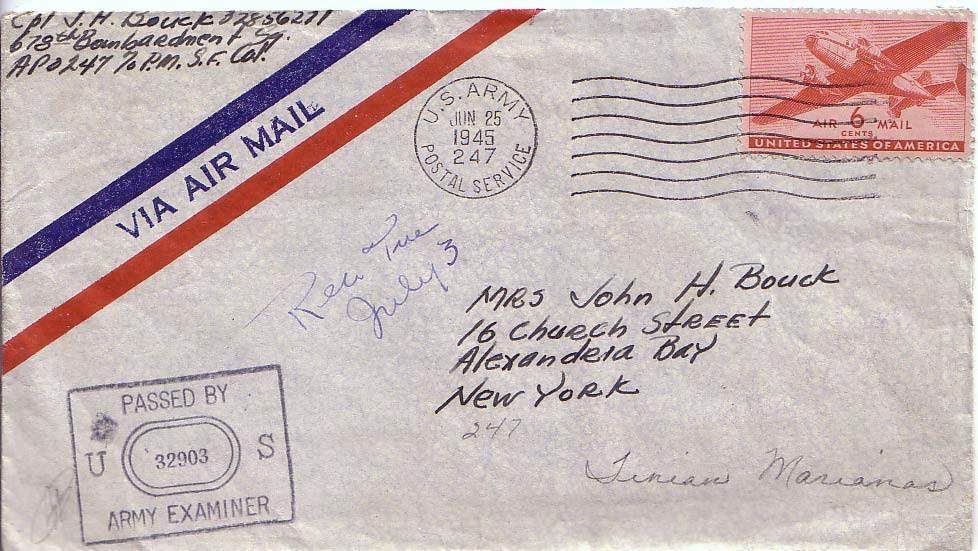 Cpl J. H. Bouck
678th Bombardment Sq.
APO 247 % P.M. S.F. Cal.
VIA AIR MAIL
U.S. ARMY
JUN 25
1945
247
POSTAL SERVICE
AIR 6 MAIL
CENTS
UNITED STATES OF AMERICA
Rec Tue
July 3
MRS John H. Bouck
16 Church Street
Alexandria Bay
New York
247
Tinian Marianas
PASSED BY
U 32903 S
ARMY EXAMINER